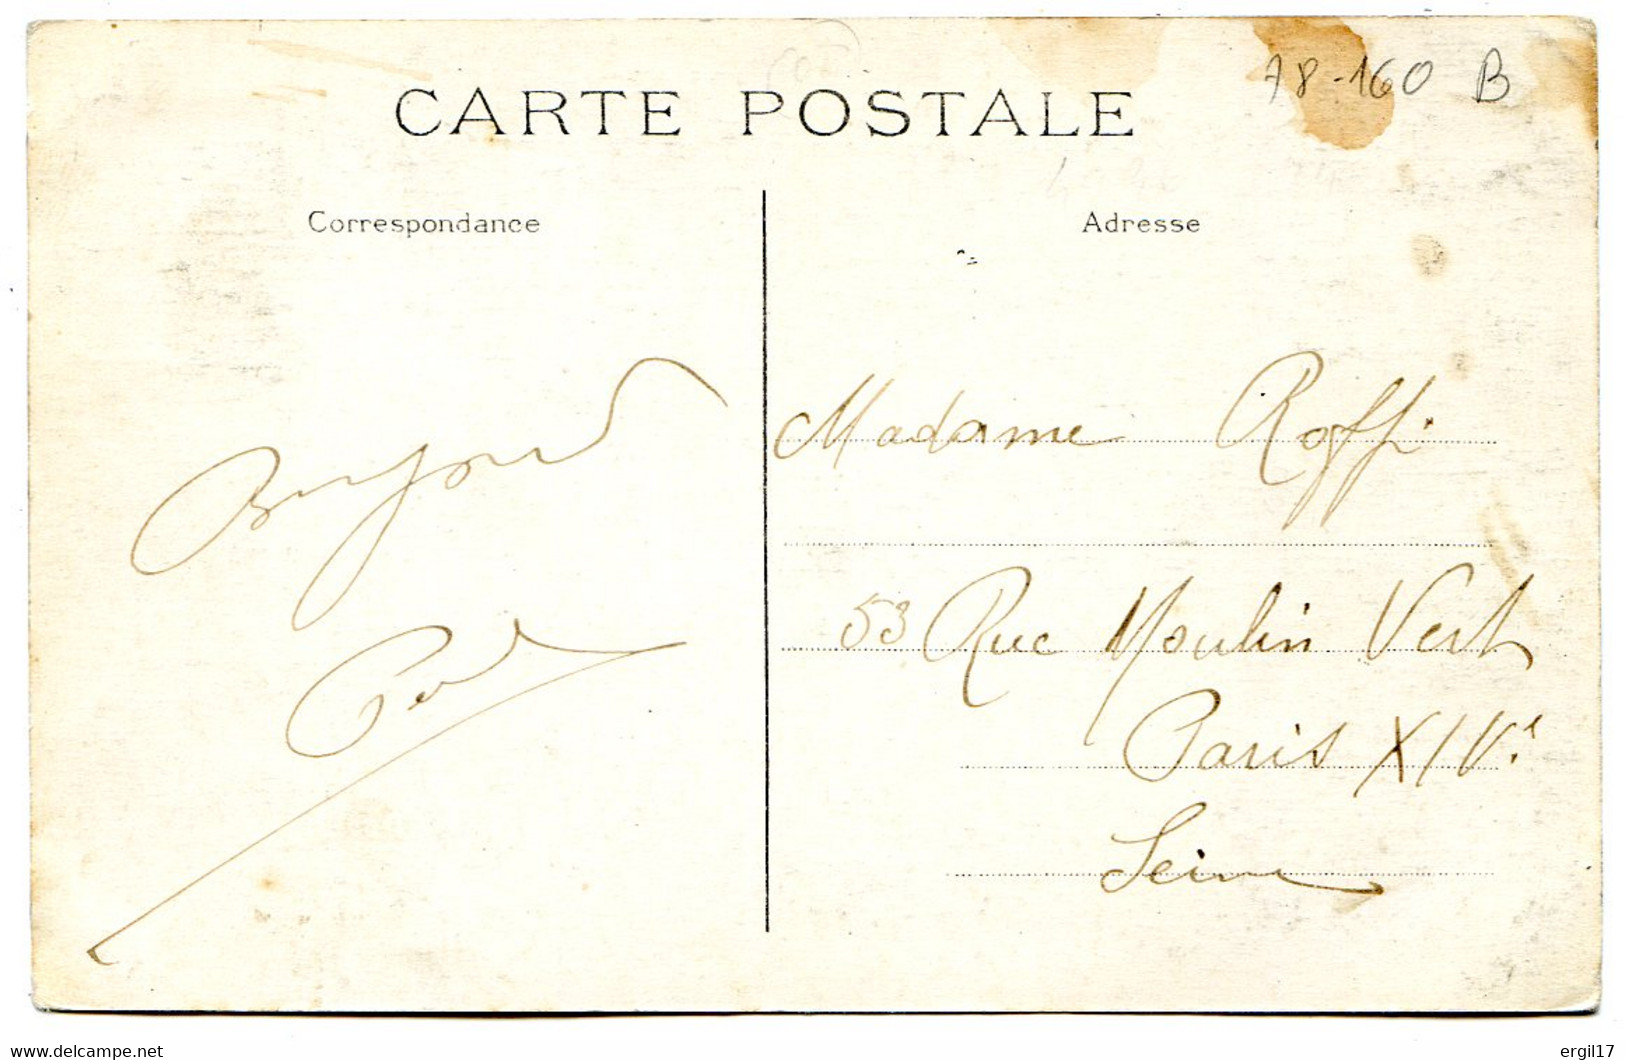 CARTE POSTALE
78-160 B
Correspondance
Adresse
Bonjour
Madame Roffi
53 Rue Moulin Vert
Paris XIVe
Seine
delcampe.net
ergil17